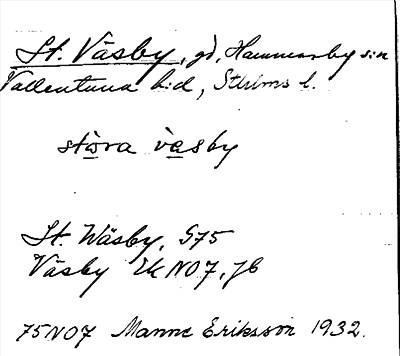 St. Väsby, gd, Hammarby s:n
Vallentuna h:d, Sthlms l.
stòra vèsby
St. Wäsby, G75
Väsby Ek NO7, Jb
75NO7 Manne Eriksson 1932.